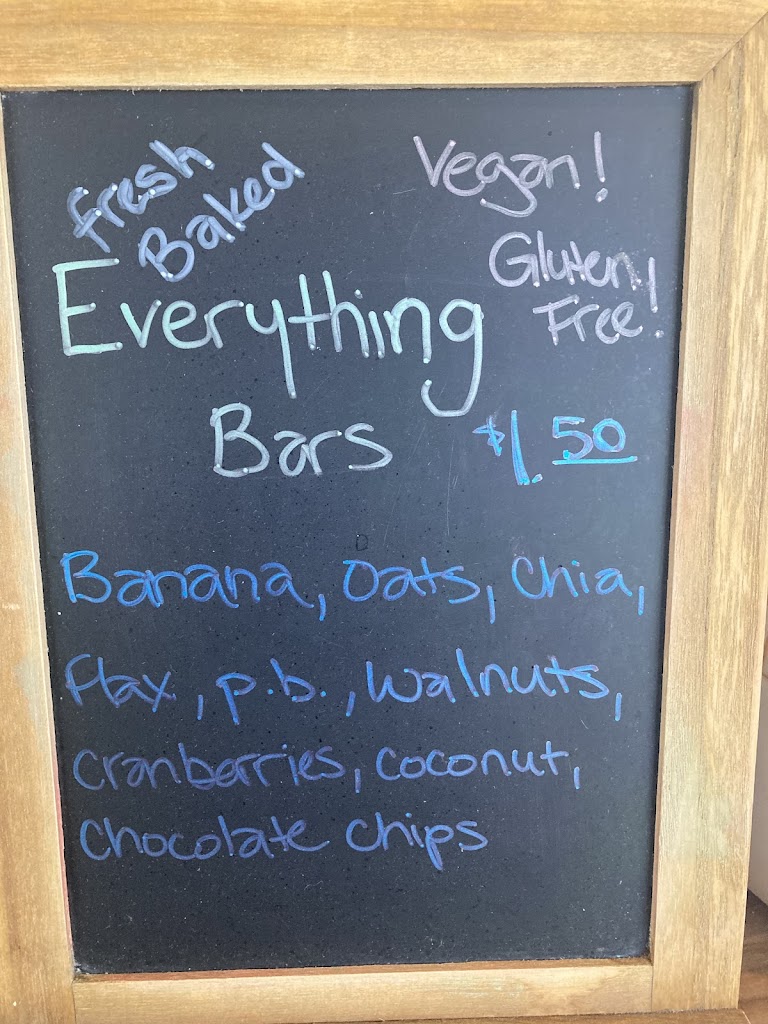 Fresh
Baked
Vegan!
Gluten
Free!
Everything
Bars
$1.50
Banana, oats, chia,
flax, p.b., walnuts,
cranberries, coconut,
chocolate chips